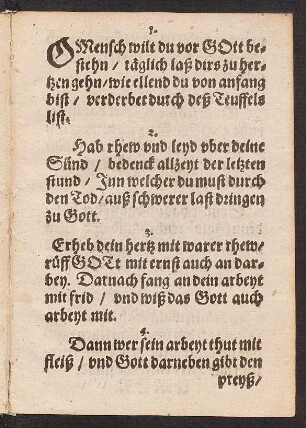 1.
O Mensch wilt du vor GOtt be-
stehn / täglich laß dirs zu her-
tzen gehn / wie ellend du von anfang
bist / verderbet durch deß Teuffels
list.
2.
Hab rhew vnd leyd vber deine
Sünd / bedenck allzeyt der letzten
stund / Jnn welcher du must durch
den Tod / auß schwerer last dringen
zu Gott.
3.
Erheb dein hertz mit warer rhew /
rüff GOTt mit ernst auch an dar-
bey. Darnach fang an dein arbeyt
mit frid / vnd wiß das Gott auch
arbeyt mit.
4.
Dann wer sein arbeyt thut mit
fleiß / vnd Gott darneben gibt den
preyß /